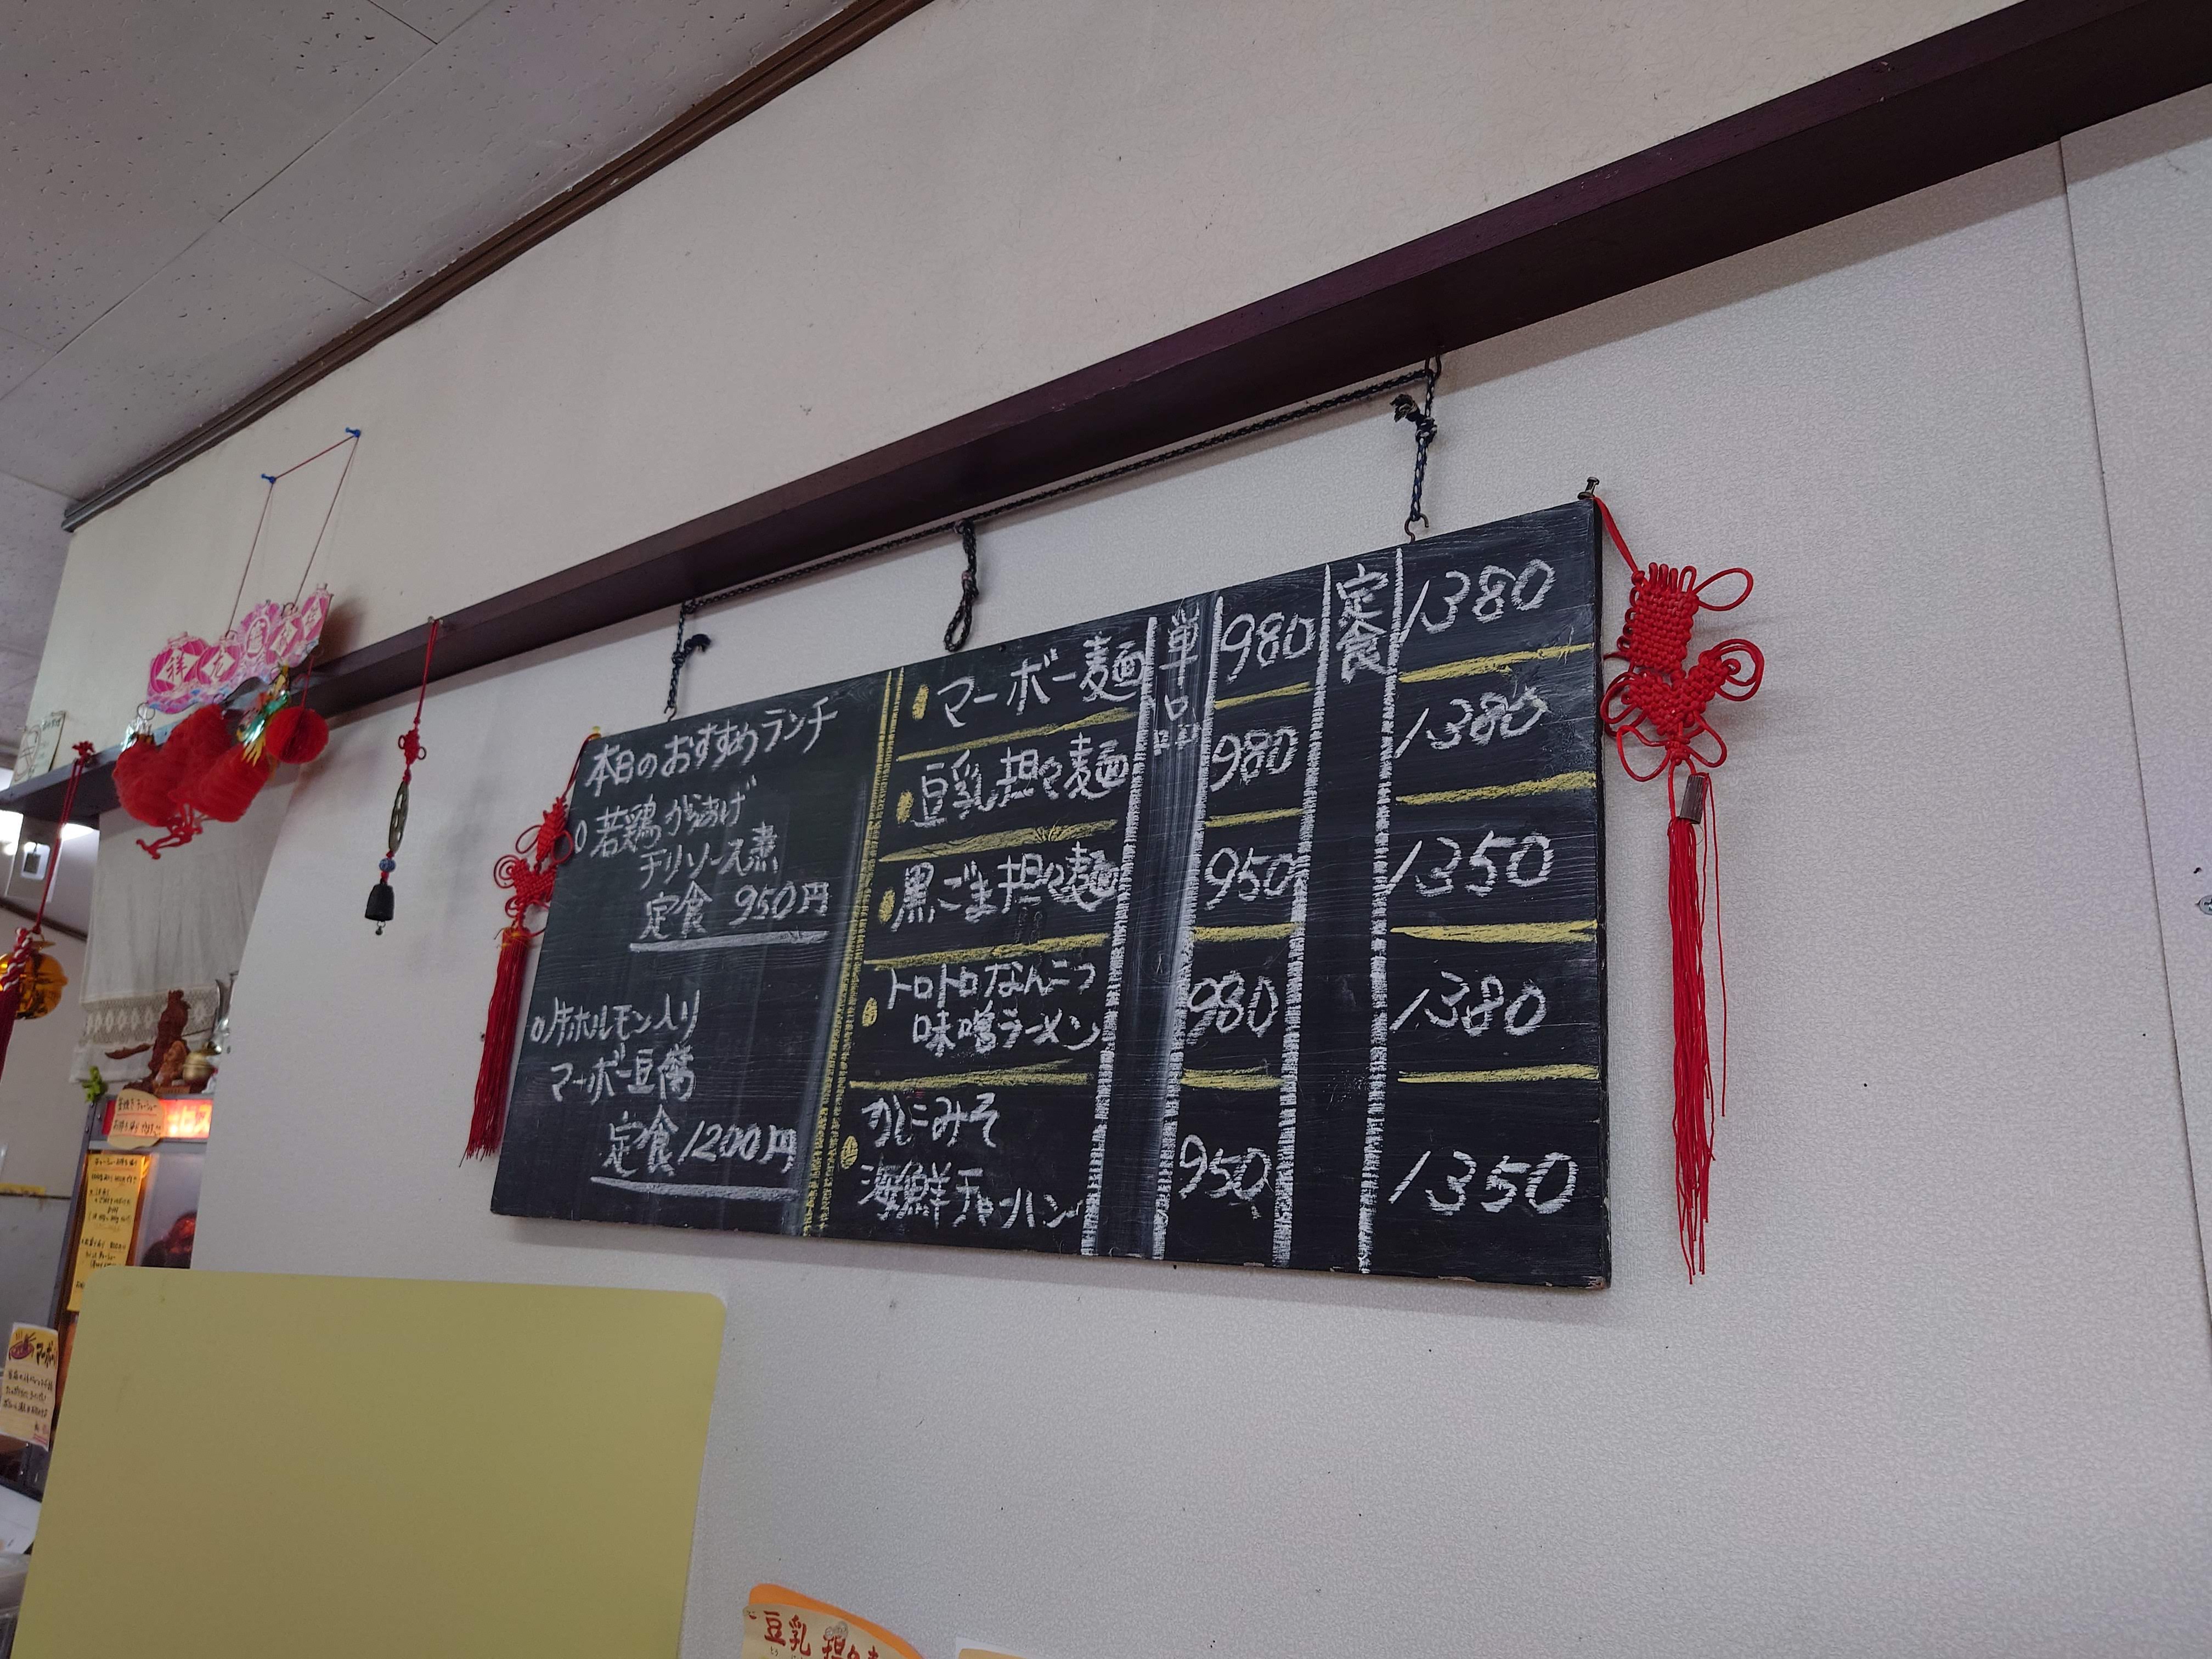 本日のおすすめランチ
若鶏からあげ
チリソース煮
定食 950円
牛ホルモン入り
マーボー豆腐
定食 1200円
単品
定食
マーボー麺 980 1380
豆乳担々麺 980 1380
黒ごま担々麺 950 1350
トロトロなんこつ
味噌ラーメン 980 1380
かにみそ
海鮮チャーハン 950 1350
豆乳 担々